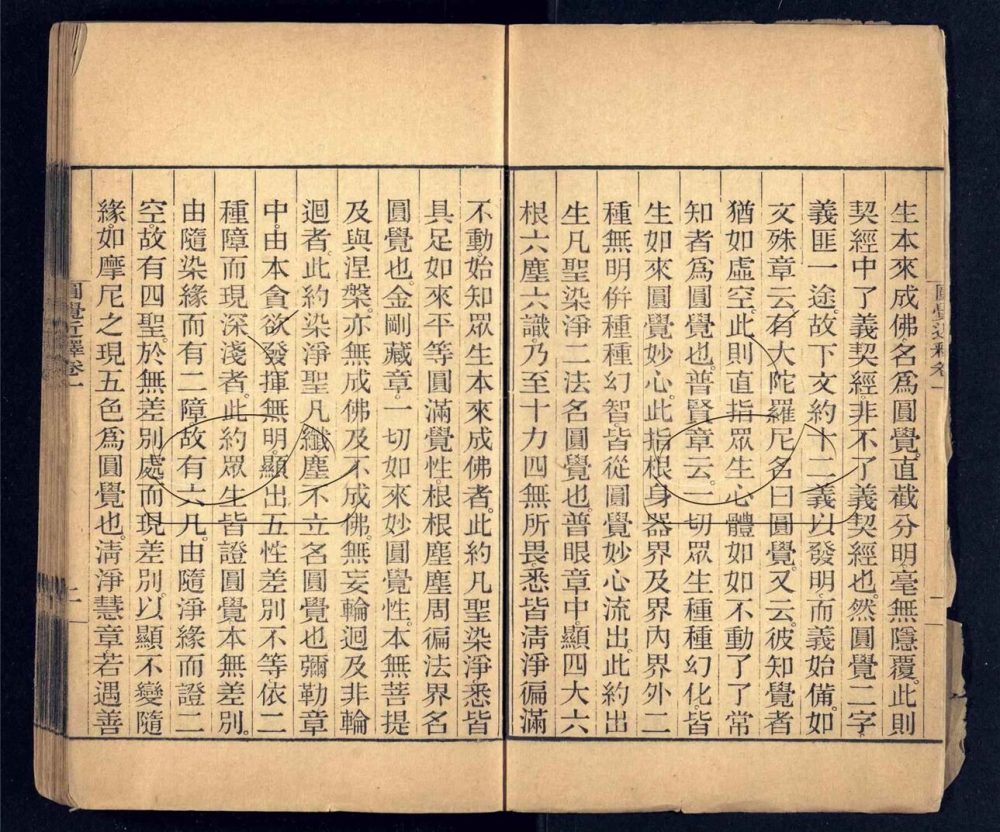 圓覺近釋卷一
一
生本來成佛名爲圓覺。直截分明毫無隱覆。此則
契經中了義契經。非不了義契經也。然圓覺二字
義匪一途。故下文約十二義以發明。而義始備。如
文殊章云。有大陀羅尼名曰圓覺。又云。彼知覺者
猶如虛空。此則直指眾生心體如如不動了了常
知者爲圓覺也。普賢章云。一切眾生種種幻化。皆
生如來圓覺妙心。此指根身器界及界內界外二
種無明。併種種幻智皆從圓覺妙心流出。此約出
生凡聖染淨二法名圓覺也。普眼章中。顯四大六
根六塵六識。乃至十力四無所畏。悉皆清淨徧滿
不動。始知眾生本來成佛者。此約凡聖染淨悉皆
具足如來平等圓滿覺性。根根塵塵周徧法界名
圓覺也。金剛藏章。一切如來妙圓覺性。本無菩提
及與涅槃。亦無成佛及不成佛。無妄輪迴及非輪
迴者。此約染淨聖凡纖塵不立名圓覺也彌勒章
中。由本貪欲發揮無明。顯出五性差別不等。依二
種障而現深淺者。此約眾生皆證圓覺本無差別。
由隨染緣而有二障故有六凡。由隨淨緣而證二
空。故有四聖。於無差別處而現差別。以顯不變隨
緣。如摩尼之現五色爲圓覺也。清淨慧章。若遇善
圓覺近釋卷一
二